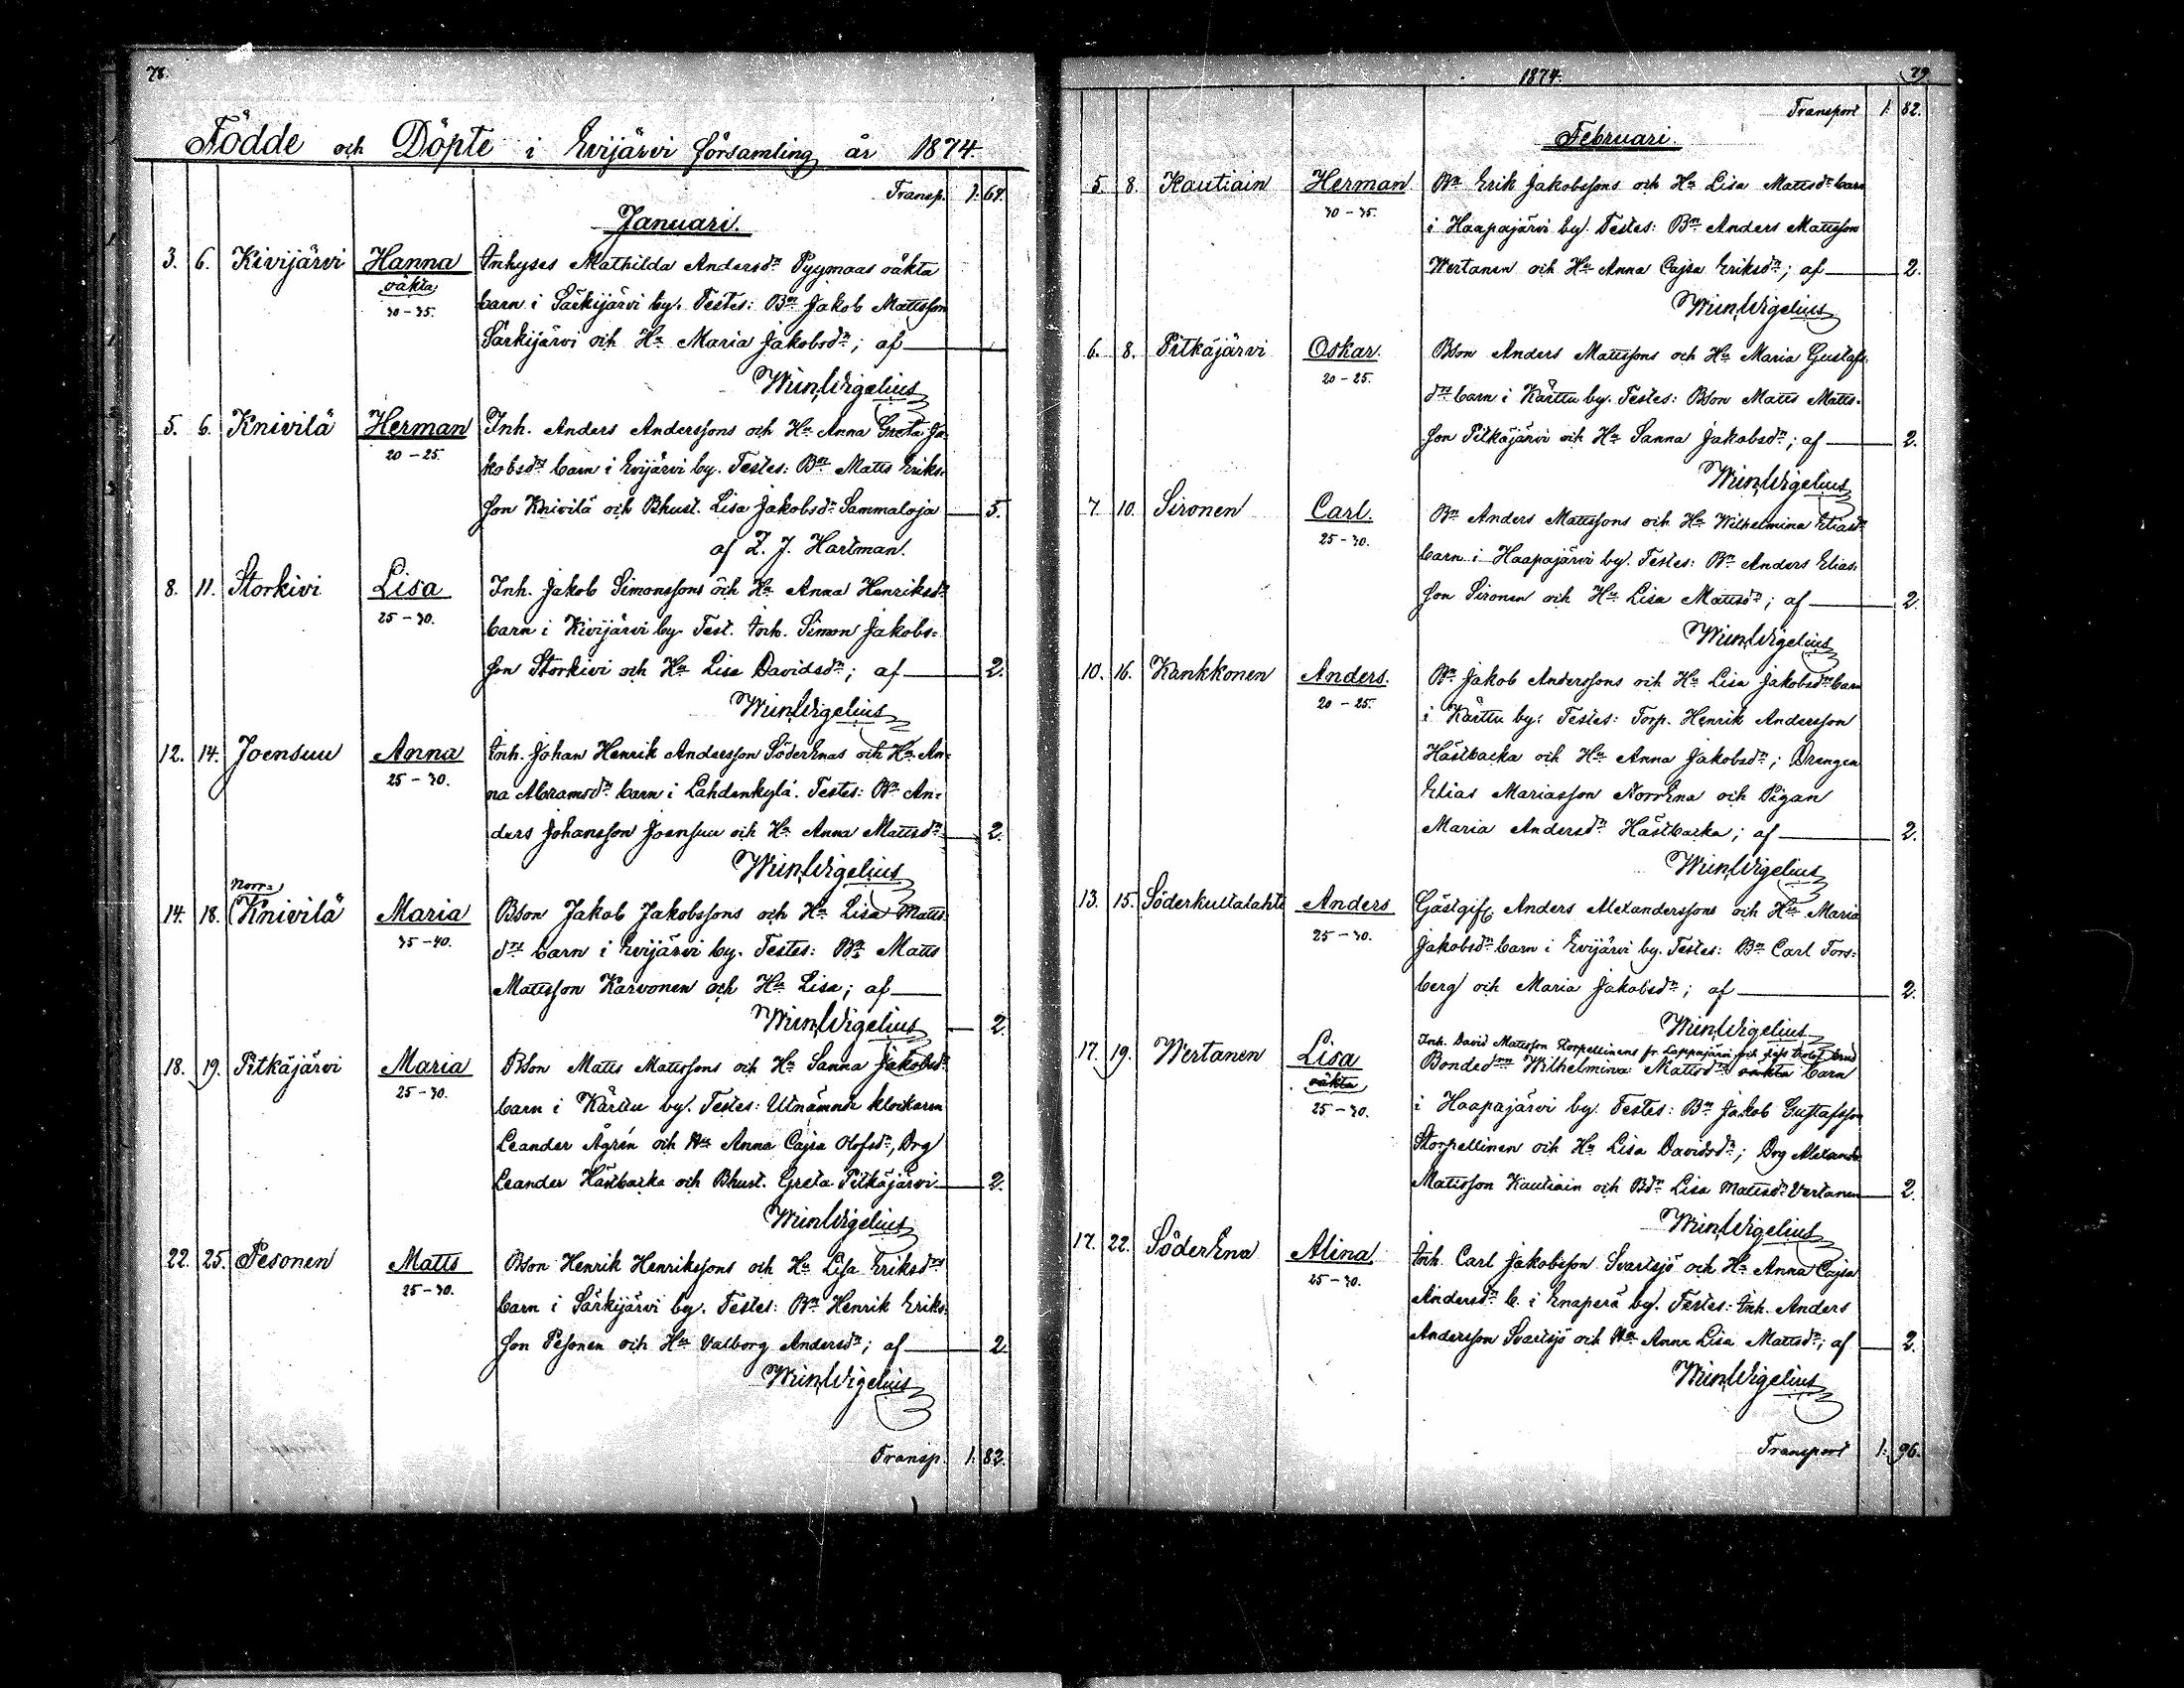 78.
Födde och Döpte i Evijärvi församling år 1874.
Transp. 1. 67.
Januari.
3. 6. Kivijärvi Hanna Inhyses Mathilda Andersdr Pyymaas oäkta
oäkta
30-35.
barn i Särkijärvi by. Testes: Bn Jakob Mattsson
Särkijärvi och Hu Maria Jakobsdr; af
Wm Wigelius
5. 6. Knivilä Herman Inh. Anders Anderssons och Hu Anna Greta Ja-
20-25.
kobsdrs barn i Evijärvi by. Testes: Bn Matts Eriks-
son Knivilä och Bhust. Lisa Jakobsdr Sammaloja 5.
af Z. J. Hartman.
8. 11. Storkivi Lisa Inh. Jakob Simonssons och Hu Anna Henriksdrs
25-30.
barn i Kivijärvi by. Test. Inh. Simon Jakobs-
son Storkivi och Hu Lisa Davidsdr; af 2.
Wm Wigelius
12. 14. Joensuu Anna Inh. Johan Henrik Andersson SöderEnas och Hu An-
25-30.
na Abramsdrs barn i Lahdenkylä. Testes: Bn An-
ders Johansson Joensuu och Hu Anna Mattsdr 2.
Wm Wigelius
Norr-
14. 18. Knivilä Maria Bson Jakob Jakobssons och Hu Lisa Matts-
35-40.
drs barn i Evijärvi by. Testes: Bn Matts
Mattsson Karvonen och Hu Lisa; af
Wm Wigelius 2.
18. 19. Pitkäjärvi Maria Bson Matts Mattssons och Hu Sanna Jakobsdrs
25-30.
barn i Kärttu by. Testes: Utnämnde klockaren
Leander Ågrén och Hu Anna Cajsa Olofsdr, Drg
Leander Hästbacka och Bhust. Greta Pitkäjärvi 2.
Wm Wigelius
22. 25. Pesonen Matts Bson Henrik Henrikssons och Hu Lisa Eriksdrs
25-30.
barn i Särkijärvi by. Testes: Bn Henrik Eriks-
son Pesonen och Hu Valborg Andersdr; af 2.
Wm Wigelius
Transp. 1. 82.
1874. 79.
Transport 1. 82.
Februari.
5. 8. Kautiain Herman Bn Erik Jakobssons och Hu Lisa Mattsdrs barn
30-35.
i Haapajärvi by. Testes: Bn Anders Mattsson
Wertanen och Hu Anna Cajsa Eriksdr; af 2.
Wm Wigelius
6. 8. Pitkäjärvi Oskar. Bson Anders Mattssons och Hu Maria Gustafs-
20-25.
drs barn i Kärttu by. Testes: Bson Matts Matts-
son Pitkäjärvi och Hu Sanna Jakobsdr; af 2.
Wm Wigelius
7. 10. Sironen Carl. Bn Anders Mattssons och Hu Wilhelmina Eliasdrs
25-30.
barn i Haapajärvi by. Testes: Bn Anders Elias-
son Sironen och Hu Lisa Mattsdr; af 2.
Wm Wigelius
10. 16. Kankkonen Anders. Bn Jakob Anderssons och Hu Lisa Jakobsdrs barn
20-25.
i Kärttu by. Testes: Torp. Henrik Andersson
Hästbacka och Hu Anna Jakobsdr; Drengen
Elias Mariasson NorrEna och Pigan
Maria Andersdr Hästbacka; af 2.
Wm Wigelius
13. 15. Söderkultalahti Anders Gästgif. Anders Alexanderssons och Hu Maria
25-30.
Jakobsdrs barn i Evijärvi by. Testes: Bn Carl Fors-
berg och Maria Jakobsdr; af 2.
Wm Wigelius
Inh. David Mattsson Storpellinens fr Lappajärvi och dess trolof. brud
17. 19. Wertanen Lisa Bondedrn Wilhelmina Mattsdrs oäkta barn
oäkta
25-30.
i Haapajärvi by. Testes: Bn Jakob Gustafsson
Storpellinen och Hu Lisa Davidsdr; Drg Alexander
Mattsson Kautiain och Bdr Lisa Mattsdr Vertanen 2.
Wm Wigelius
17. 22. SöderEna Alina Inh. Carl Jakobsson Svartsjö och Hu Anna Cajsa
25-30.
Andersdrs b. i Enaperä by. Testes: Inh. Anders
Andersson Svartsjö och Hu Anna Lisa Mattsdr; af 2.
Wm Wigelius
Transport 1. 96.